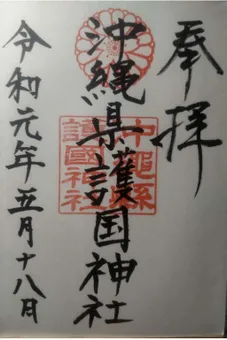 奉拝
沖縄県護国神社
護國神社
令和元年五月十八日